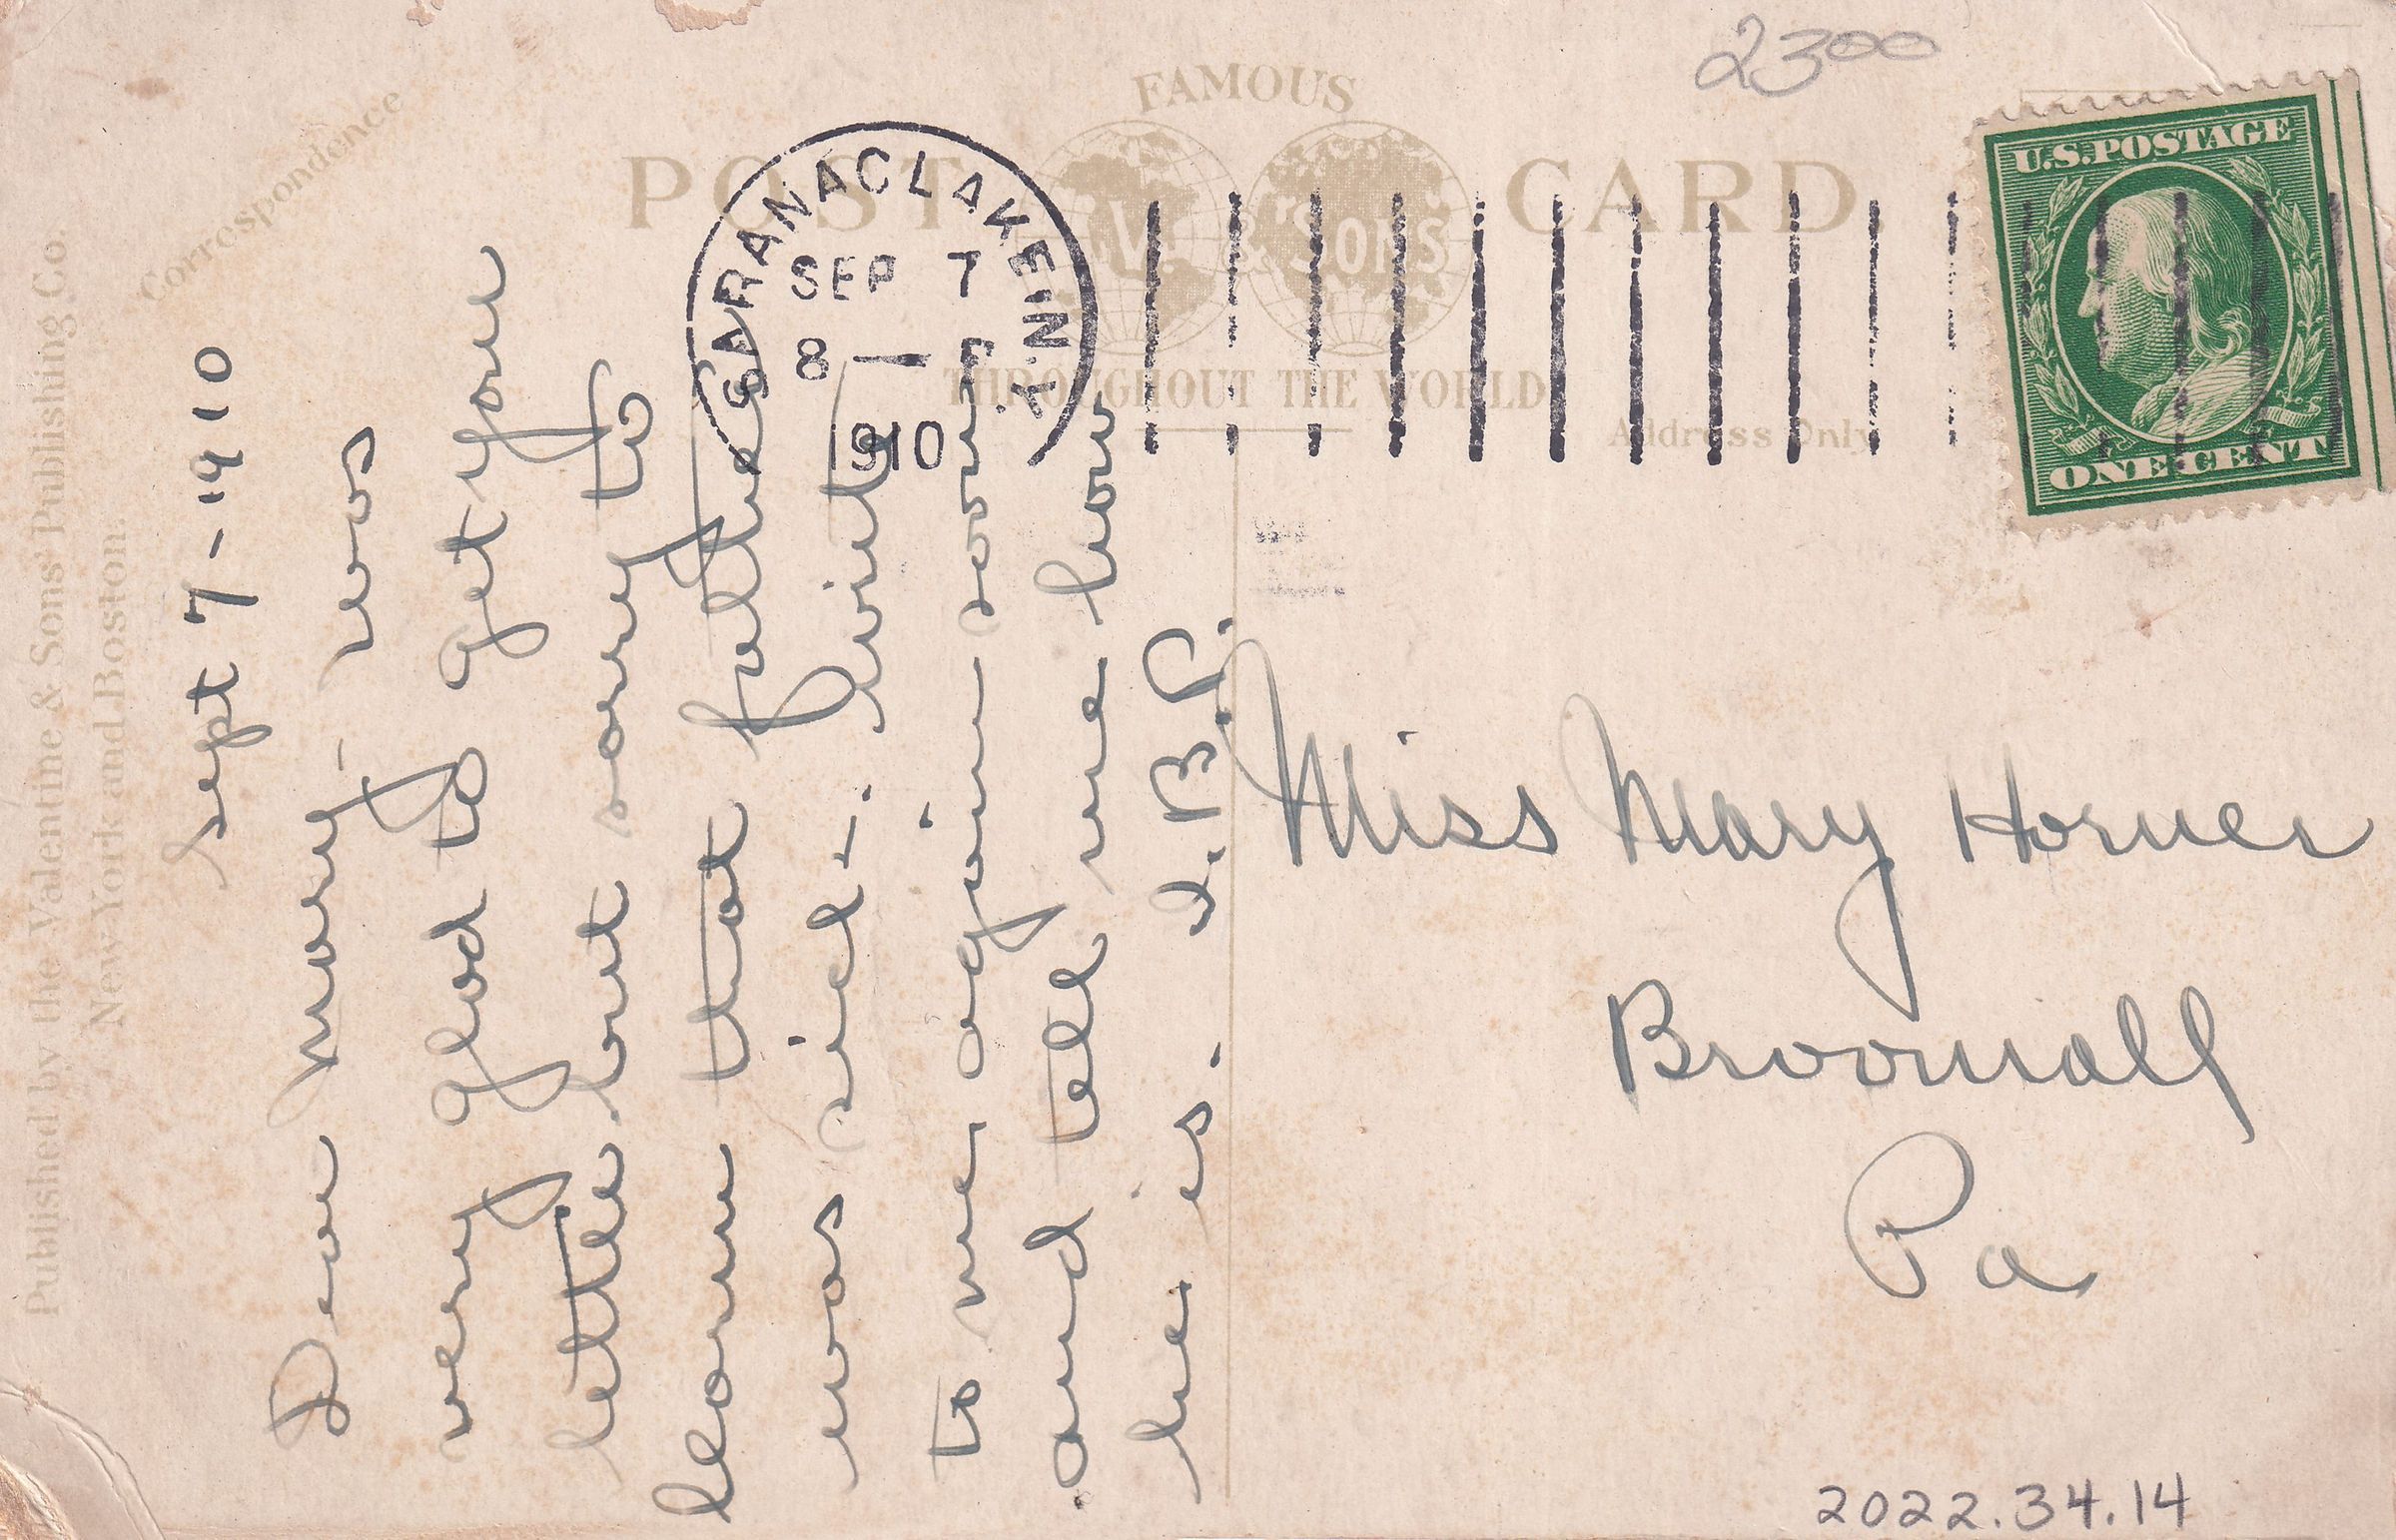 2300
FAMOUS
POST CARD
V. & SONS
THROUGHOUT THE WORLD
Correspondence
Address Only
Published by the Valentine & Sons' Publishing Co.
New York and Boston.
SARANAC LAKE, N.Y.
SEP 7
8 – P
1910
U.S. POSTAGE
ONE CENT
Sept 7 – 1910
Dear Mary – was
very glad to get your
letter but sorry to
learn that father
was sick. Write
to me again soon
and tell me how
he is. J. B. P.
Miss Mary Horner
Broomall
Pa
2022.34.14